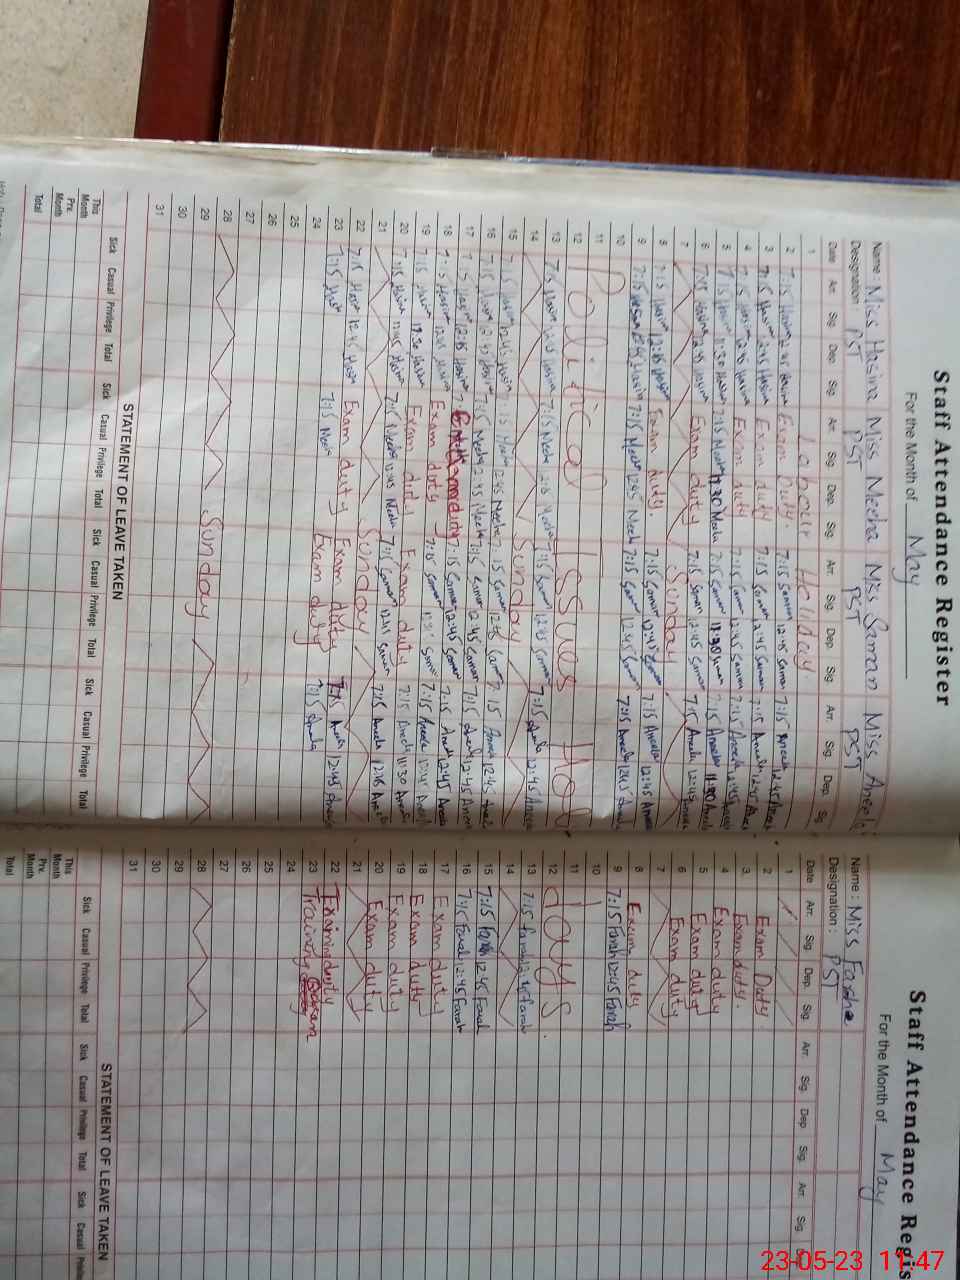 Staff Attendance Register
For the Month of May
Name : Miss Hasina Miss Meeha Miss Saman Miss Aneela
Designation : PST PST PST PST
Date Arr. Sig. Dep. Sig. Arr. Sig. Dep. Sig. Arr. Sig. Dep. Sig. Arr. Sig. Dep. Sig
1 Labour Holiday
2 7:15 Hasina 12:45 Hasina Exam Duty. 7:15 Saman 12:45 Saman 7:15 Aneela 12:45 Aneela
3 7:15 Hasina 12:45 Hasina Exam duty 7:15 Saman 12:45 Saman 7:15 Aneela 12:45
4 7:15 Hasina 12:45 Hasina Exam duty 7:15 Saman 12:45 Saman 7:15 Aneela 12:45
5 7:15 Hasina 11:30 Hasina 7:15 Meeha 11:30 Meeha 7:15 Saman 11:30 Saman 7:15 Aneela 11:30 Aneela
6 7:15 Hasina 12:45 Hasina Exam duty 7:15 Saman 12:45 Saman 7:15 Aneela 12:45 Aneela
7 Sunday
8 7:15 Hasina 12:45 Hasina Exam duty. 7:15 Saman 12:45 Saman 7:15 Aneela 12:45 Aneela
9 7:15 Hasina 12:45 Hasina 7:15 Meeha 12:45 Meeha 7:15 Saman 12:45 Saman 7:15 Aneela 12:45
10
11 Political Issues Holi
12
13 7:15 Hasina 12:45 Hasina 7:15 Meeha 12:45 Meeha 7:15 Saman 12:45 Saman 7:15 12:45 Aneela
14 Sunday
15 7:15 Hasina 12:45 Hasina 7:15 Meeha 12:45 Meeha 7:15 Saman 12:45 Saman 7:15 Aneela 12:45
16 7:15 Hasina 12:45 Hasina 7:15 Meeha 12:45 Meeha 7:15 Saman 12:45 Saman 7:15 Aneela 12:45 Aneela
17 7:15 Hasina 12:45 Hasina 7:15 Saman 12:45 Saman 7:15 Aneela 12:45 Aneela
18 7:15 Hasina 12:45 Hasina Exam duty 7:15 Saman 7:15 Aneela 12:45
19 7:15 Hasina 11:30 Hasina Exam duty Exam duty 7:15 Aneela 11:30
20 7:15 Hasina 12:45 Hasina 7:15 Meeha 12:45 Meeha 7:15 Saman 12:45 Saman 7:15 Aneela 12:45 Aneela
21 Sunday
22 7:15 12:45 Exam duty Exam duty 7:15 Aneela 12:45 Aneela
23 7:15 7:15 Meeha Exam duty 7:15 Aneela
24
25
26
27
28 Sunday
29
30
31
STATEMENT OF LEAVE TAKEN
Sick Casual Privilege Total Sick Casual Privilege Total Sick Casual Privilege Total Sick Casual Privilege Total
This Month
Prv. Month
Total
Staff Attendance Regis
For the Month of May
Name : Miss Farha
Designation : PST
Date Arr. Sig. Dep. Sig. Arr. Sig. Dep. Sig. Arr. Sig.
1
2 Exam Duty
3 Exam duty.
4 Exam duty
5 Exam duty
6 Exam duty
7
8 Exam duty
9 7:15 Farah 12:45 Farah
10
11 days.
12
13 7:15 Farah 12:45 Farah
14
15 7:15 Farah 12:45 Farah
16 7:15 Farah 12:45 Farah
17 Exam duty
18 Exam duty
19 Exam duty
20 Exam duty
21
22 Exam duty
23 Training
24
25
26
27
28
29
30
31
STATEMENT OF LEAVE TAKEN
Sick Casual Privilege Total Sick Casual Privilege Total Sick Casual
This Month
Prv. Month
Total
23-05-23 11:47